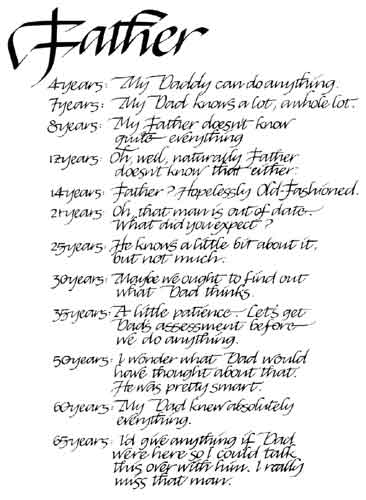 Father
4 years: My Daddy can do anything.
7 years: My Dad knows a lot, a whole lot.
8 years: My Father doesn't know
quite everything
12 years: Oh, well, naturally Father
doesn't know that either.
14 years: Father? Hopelessly Old-Fashioned.
21 years: Oh, that man is out of date.
What did you expect?
25 years: He knows a little bit about it,
but not much.
30 years: Maybe we ought to find out
what Dad thinks.
35 years: A little patience. Let's get
Dad's assessment before
we do anything.
50 years: I wonder what Dad would
have thought about that.
He was pretty smart.
60 years: My Dad knew absolutely
everything.
65 years: I'd give anything if Dad
were here so I could talk
this over with him. I really
miss that man.